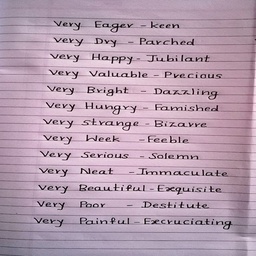 Very Eager - keen
Very Dry - Parched
Very Happy - Jubilant
Very Valuable - Precious
Very Bright - Dazzling
Very Hungry - Famished
Very strange - Bizarre
Very Week - Feeble
Very Serious - Solemn
Very Neat - Immaculate
Very Beautiful - Exquisite
Very Poor - Destitute
Very Painful - Excruciating